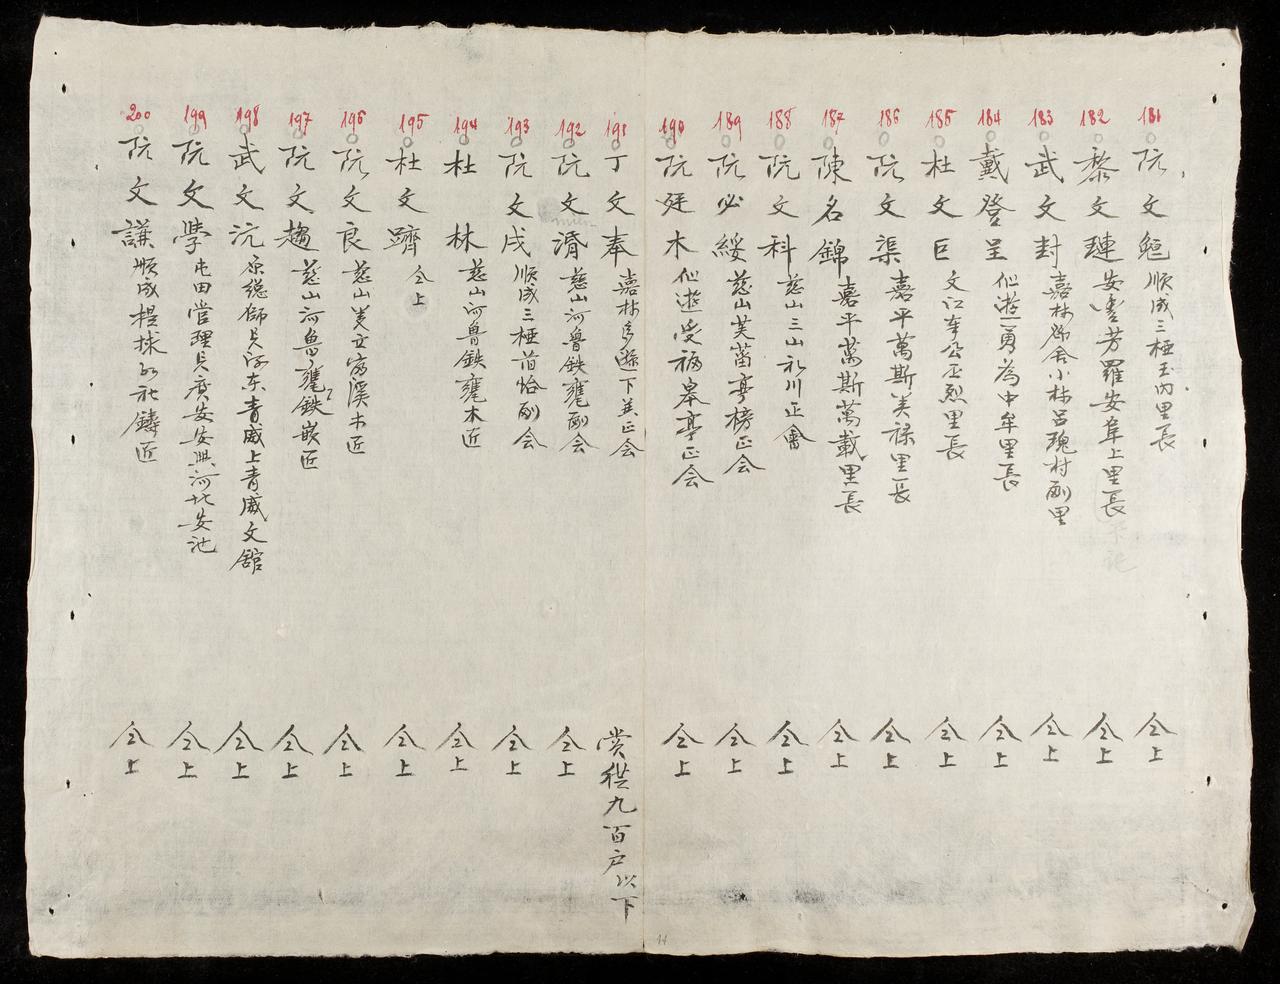 181
阮文勉順成三極玉內里長
仝上
182
黎文璉安豐芳羅安阜上里長
仝上
183
武文封嘉林金小林呂瑰村副里
仝上
184
戴登呈仙遊勇為中牟里長
仝上
185
杜文巨文江奉公丕烈里長
仝上
186
阮文渠嘉平萬斯美祿里長
仝上
187
陳名錦嘉平萬斯萬載里長
仝上
188
阮文科慈山三山礼川正會
仝上
189
阮必綏慈山芙菑亭榜正会
仝上
190
阮廷木仙遊受福皋亭正会
仝上
191
丁文奉嘉林多遜下正会
賞祿九百戶以下
192
阮文滑慈山河魯鉄甕副会
仝上
193
阮文戌順成三極首怡副会
仝上
194
杜林慈山河魯鉄甕木匠
仝上
195
杜文躋仝上
仝上
196
阮文良慈山芙文窩溪木匠
仝上
197
阮文趨慈山河魯甕鉄嵌匠
仝上
198
武文沆原總師員河东青威上青威文舘
仝上
199
阮文學屯田管理員廣安安興河北安池
仝上
200
阮文謙順成提球社鑄匠
仝上
14